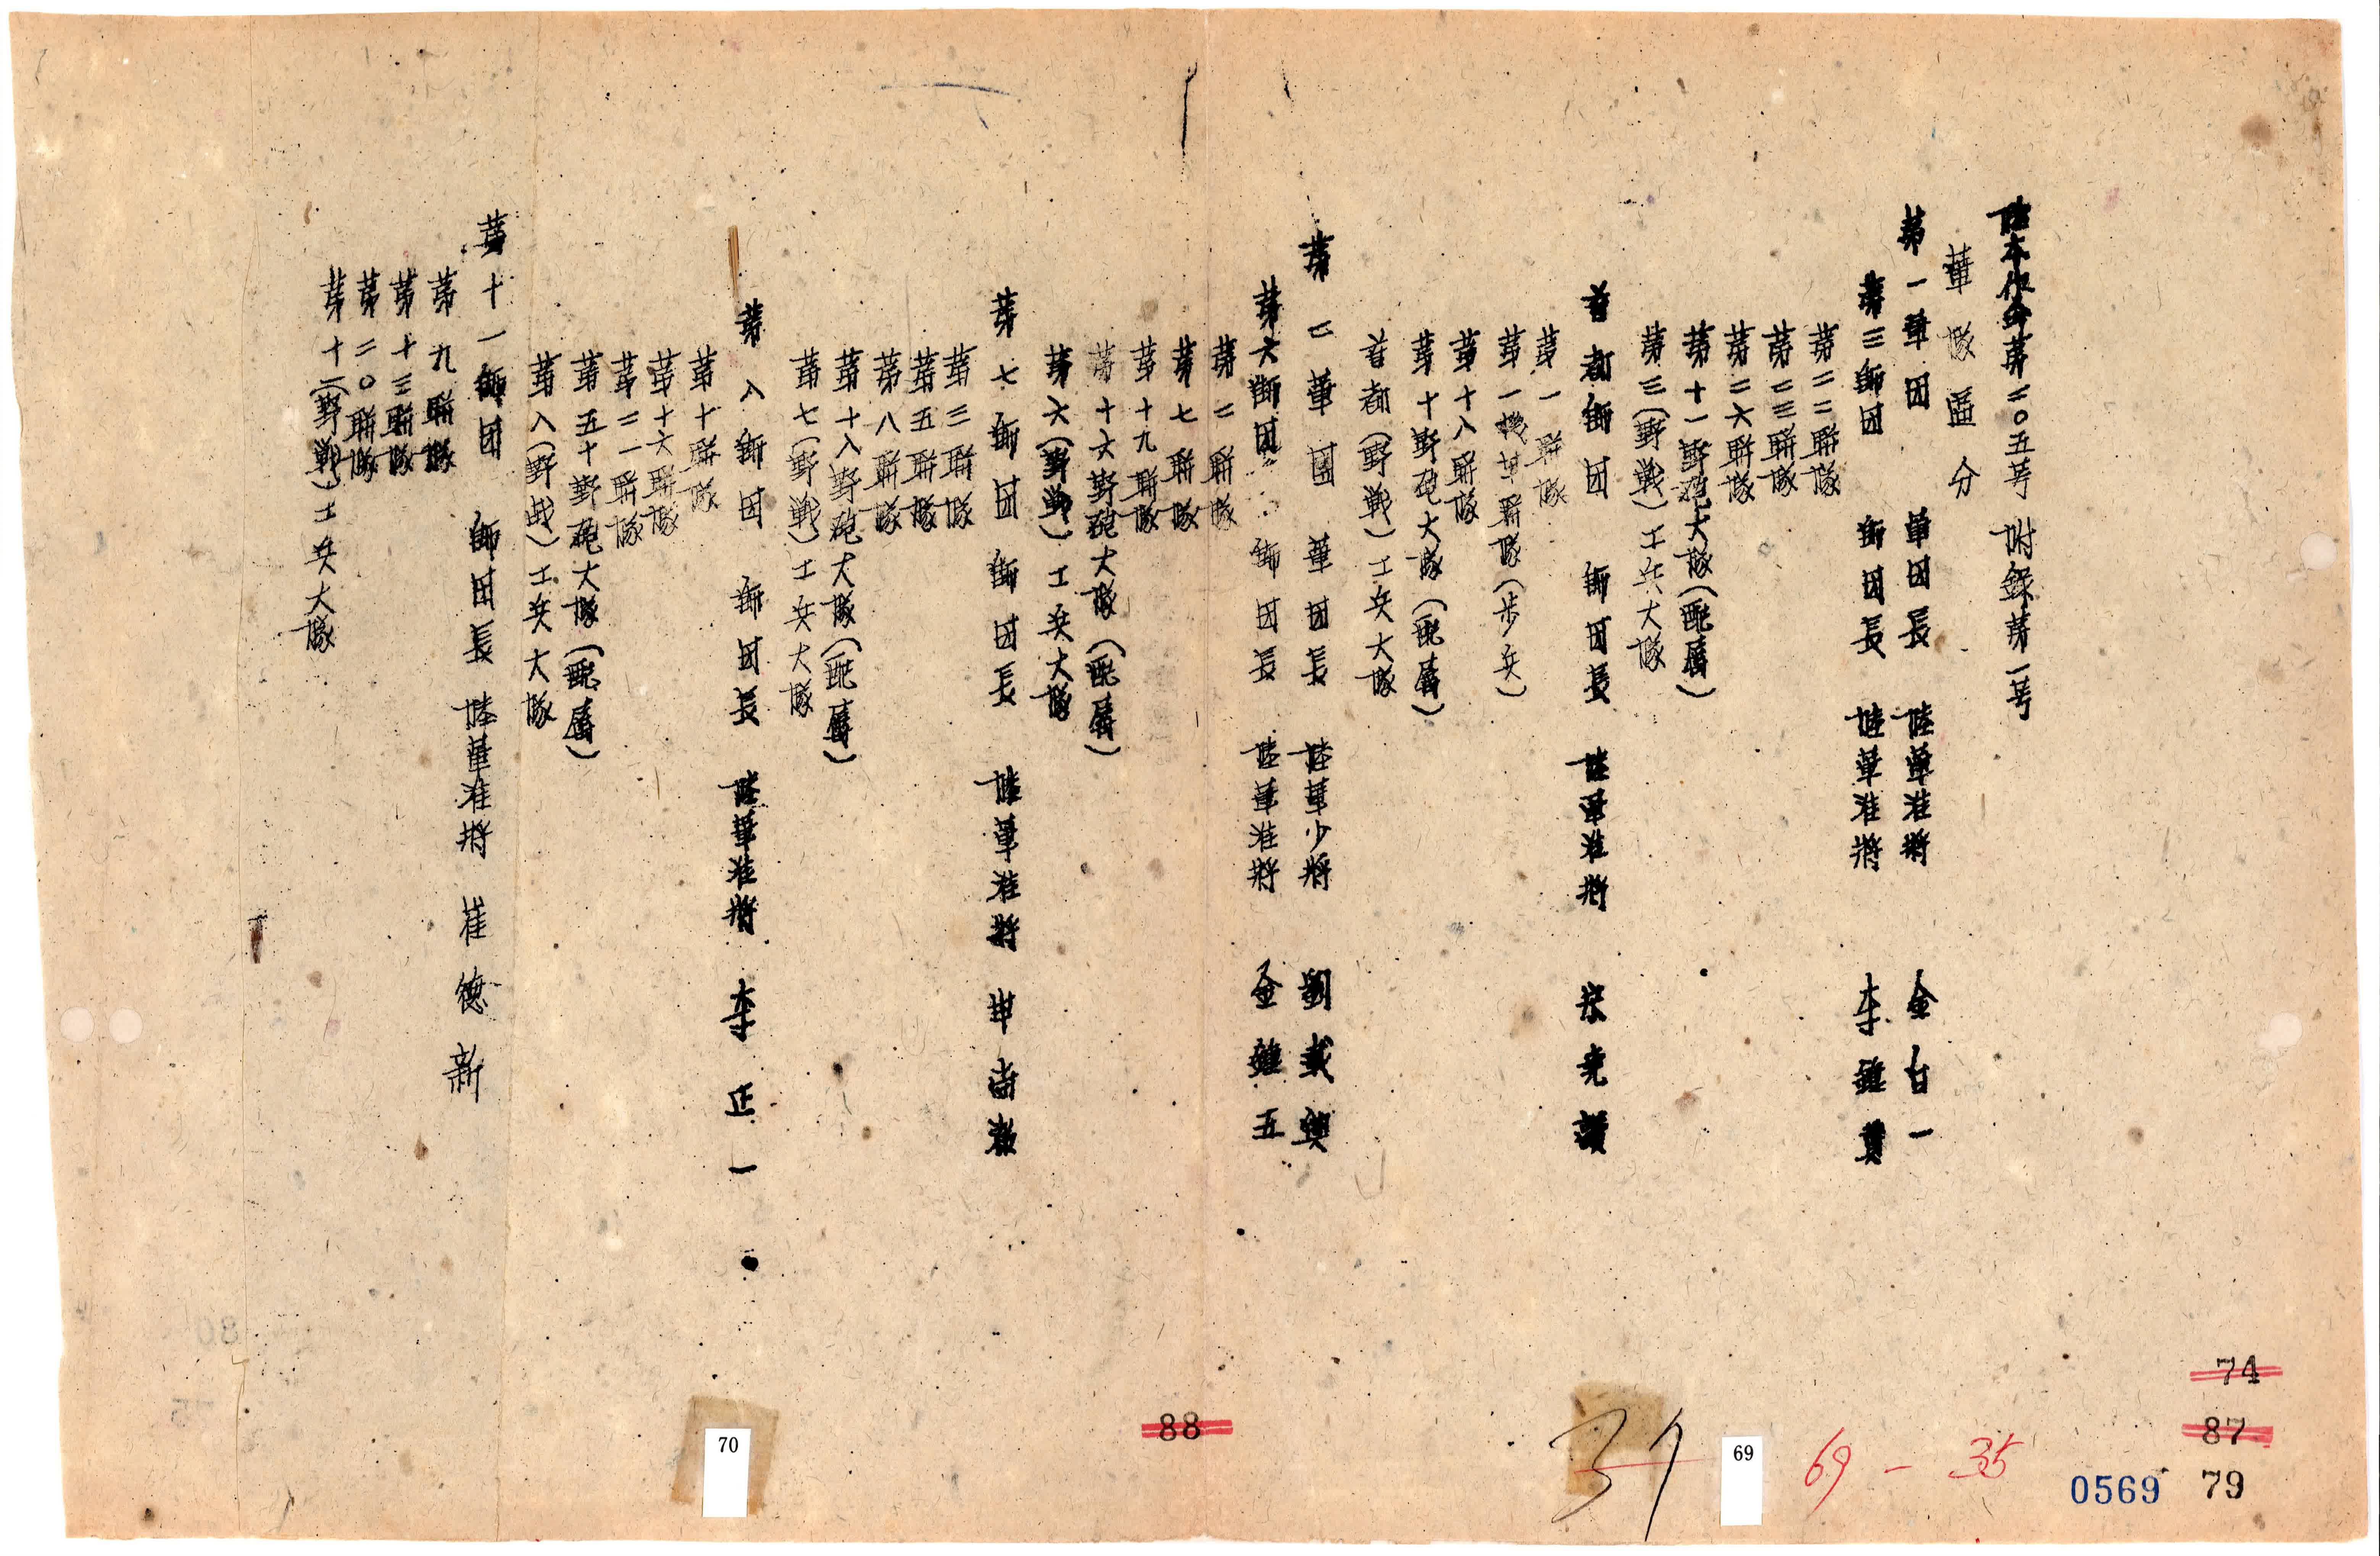 陸本作命第二〇五号 附録第一号
軍隊區分
第一軍団 軍団長 陸軍准將 金白一
第三師団 師団長 陸軍准將 李鍾賛
第二二聯隊
第二三聯隊
第二六聯隊
第十一野砲大隊(配屬)
第三(野戰)工兵大隊
首都師団 師団長 陸軍准將 宋堯讚
第一聯隊
第一機甲聯隊(步兵)
第十八聯隊
第十野砲大隊(配屬)
首都(野戰)工兵大隊
第二軍團 軍団長 陸軍少將 劉載興
第六師団 師団長 陸軍准將 金鍾五
第二聯隊
第七聯隊
第十九聯隊
第十六野砲大隊(配屬)
第六(野戰)工兵大隊
第七師団 師団長 陸軍准將 申尚澈
第三聯隊
第五聯隊
第八聯隊
第十八野砲大隊(配屬)
第七(野戰)工兵大隊
第八師団 師団長 陸軍准將 李正一
第十聯隊
第十六聯隊
第二一聯隊
第五十野砲大隊(配屬)
第八(野战)工兵大隊
第十一師団 師団長 陸軍准將 崔德新
第九聯隊
第十三聯隊
第二〇聯隊
第十一(野戰)工兵大隊
74
88
87
70
37
69
69-35
0569
79